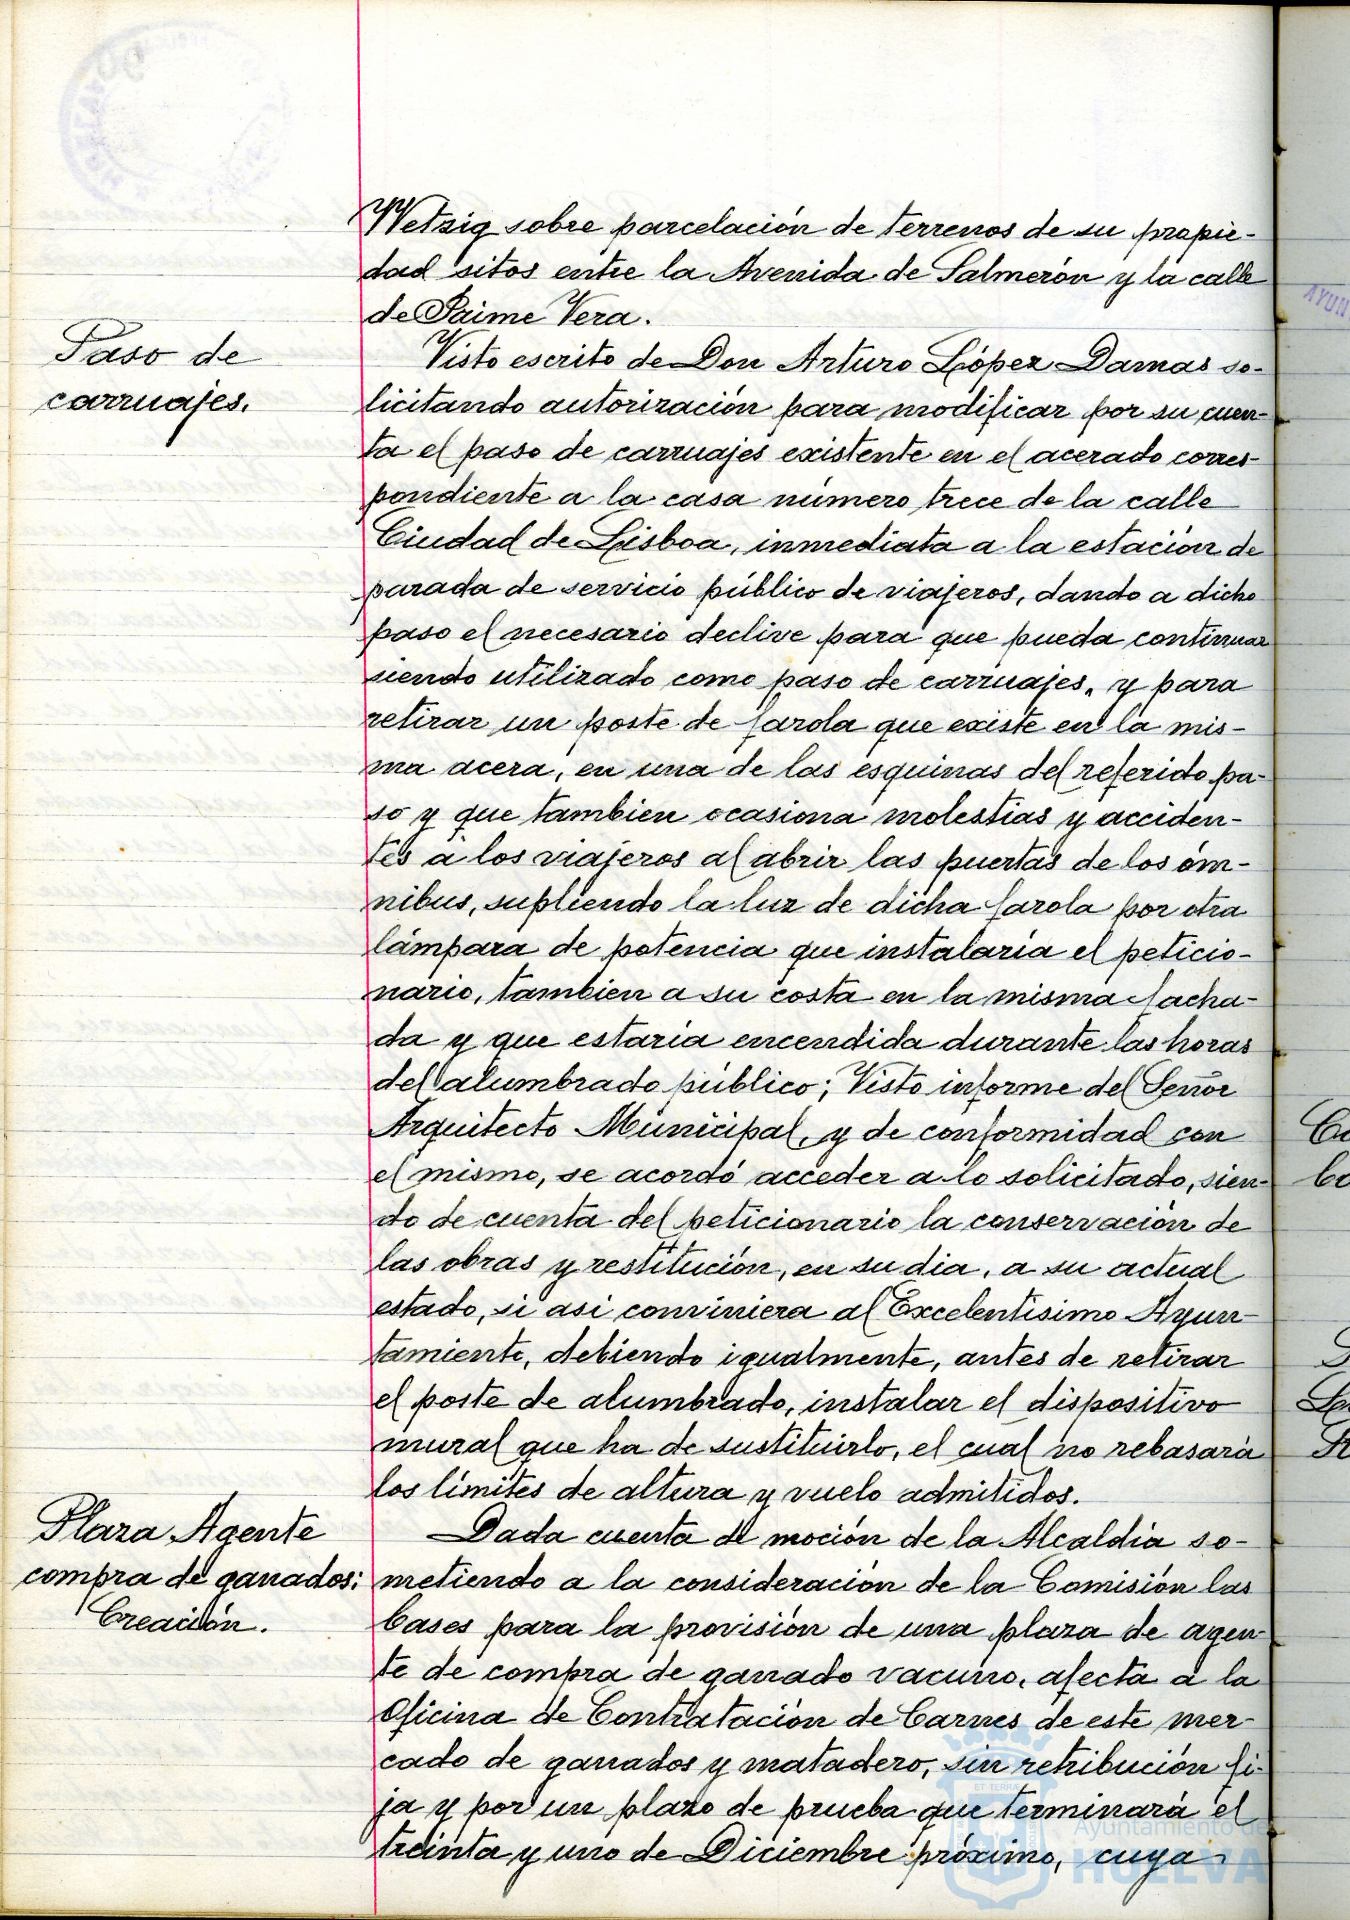 Wetzig sobre parcelación de terrenos de su propie-
dad sitos entre la Avenida de Salmerón y la calle
de Jaime Vera.
Paso de
carruajes.
Visto escrito de Don Arturo López Damas so-
licitando autorización para modificar por su cuen-
ta el paso de carruajes existente en el acerado corres-
pondiente a la casa número trece de la calle
Ciudad de Lisboa, inmediata a la estación de
parada de servicio público de viajeros, dando a dicho
paso el necesario declive para que pueda continuar
siendo utilizado como paso de carruajes, y para
retirar un poste de farola que existe en la mis-
ma acera, en una de las esquinas del referido pa-
so y que tambien ocasiona molestias y acciden-
tes a los viajeros al abrir las puertas de los óm-
nibus, supliendo la luz de dicha farola por otra
lámpara de potencia que instalaría el peticio-
nario, tambien a su costa en la misma facha-
da y que estaría encendida durante las horas
del alumbrado público; Visto informe del Señor
Arquitecto Municipal, y de conformidad con
el mismo, se acordó acceder a lo solicitado, sien-
do de cuenta del peticionario la conservación de
las obras y restitución, en su dia, a su actual
estado, si asi conviniera al Excelentísimo Ayun-
tamiento, debiendo igualmente, antes de retirar
el poste de alumbrado, instalar el dispositivo
mural que ha de sustituirlo, el cual no rebasará
los límites de altura y vuelo admitidos.
Plaza Agente
compra de ganados:
Creación.
Dada cuenta de moción de la Alcaldía so-
metiendo a la consideración de la Comisión las
bases para la provisión de una plaza de agen-
te de compra de ganado vacuno, afecta a la
Oficina de Contratación de Carnes de este mer-
cado de ganados y matadero, sin retribución fi-
ja y por un plazo de prueba que terminará el
treinta y uno de Diciembre próximo, cuya
Ayuntamiento de
HUELVA
AYUN